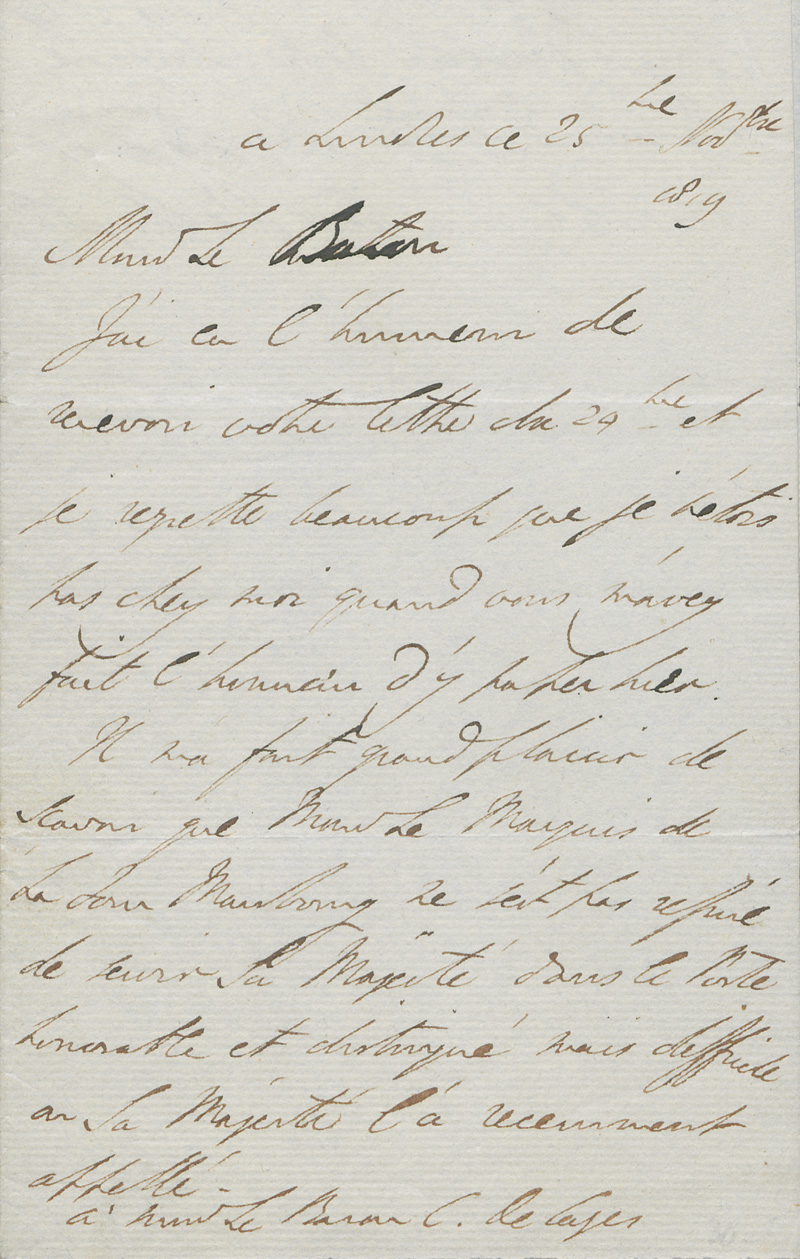 a Londres ce 25me Novbre
1819
Monsr Le Baron
J'ai eu l'honneur de
recevoir votre lettre du 24me et
je regrette beaucoup que je n'étois
pas chez moi quand vous m'avez
fait l'honneur d'y passer hier.
Il m'a fait grand plaisir de
scavoir que Monsr Le Marquis de
La Tour Maubourg ne s'est pas refusé
de servir Sa Majesté dans le Poste
honorable et distingué mais difficile
ou Sa Majesté l'a recemment
appellé -
à Monsr Le Baron C. de